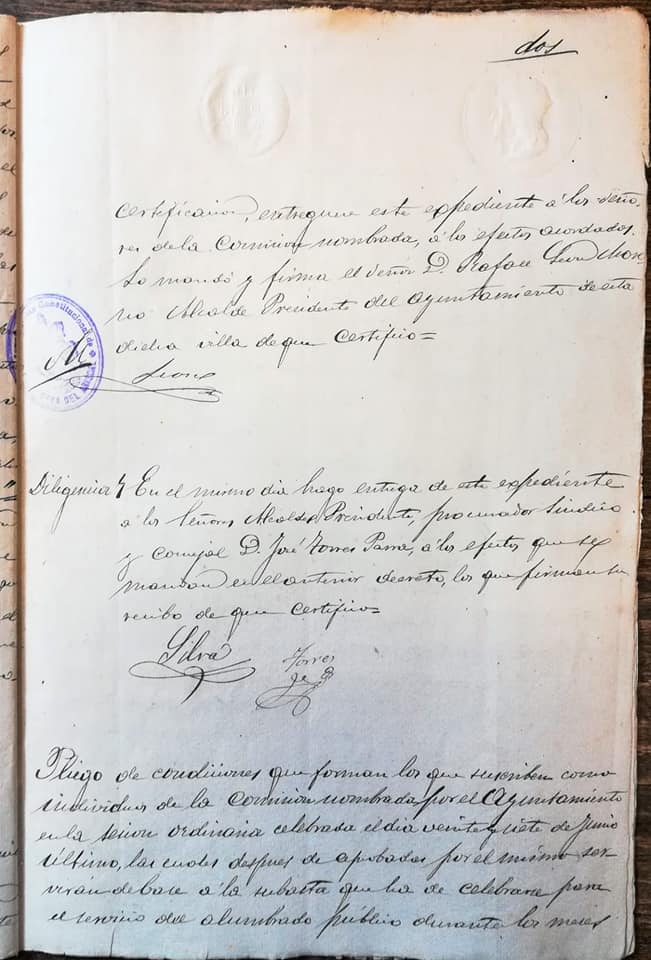 dos
certificación, entreguen este expediente á los seño-
res de la Comision nombrada, á los efectos acordados.
Lo mandó y firma el Señor D. Rafael Leon
no Alcalde Presidente del Ayuntamiento de esta
dicha villa de que certifico=
Constitucional de
M
Leon
Diligencia } En el mismo dia hago entrega de este expediente
á los Señores Alcalde Presidente, procurador Sindico
y concejal D. José Torres Parra, á los efectos que se
mandan en el anterior decreto, los que firman su
recibo de que certifico=
Silva
Torres
Pliego de condiciones que forman los que suscriben como
individuos de la Comision nombrada por el Ayuntamiento
en la sesion ordinaria celebrada el dia veinte y siete de Junio
último, las cuales despues de aprobadas por el mismo ser-
viran de base á la subasta que ha de celebrarse para
el servicio del alumbrado público durante los meses